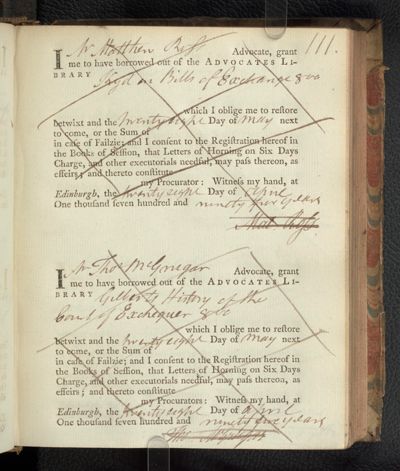 111.
I Mr Matthew Ross Advocate, grant
me to have borrowed out of the ADVOCATES LI-
BRARY Lloyd on Bills of Exchange 8vo
which I oblige me to reſtore
betwixt and the twenty eight Day of May next
to come, or the Sum of
in caſe of Failzie; and I conſent to the Regiſtration hereof in
the Books of Seſſion, that Letters of Horning on Six Days
Charge, and other executorials needful, may paſs thereon, as
effeirs; and thereto conſtitute
my Procurator: Witneſs my hand, at
Edinburgh, the twenty eight Day of April
One thouſand ſeven hundred and ninety five years
Mat. Ross.
I Mr Thos McGrugar Advocate, grant
me to have borrowed out of the ADVOCATES LI-
BRARY Gilberts History of the
Court of Exchequer 8vo
which I oblige me to reſtore
betwixt and the twenty eight Day of May next
to come, or the Sum of
in caſe of Failzie; and I conſent to the Regiſtration hereof in
the Books of Seſſion, that Letters of Horning on Six Days
Charge, and other executorials needful, may paſs thereon, as
effeirs; and thereto conſtitute
my Procurators: Witneſs my hand, at
Edinburgh, the twenty eight Day of April
One thouſand ſeven hundred and ninety five years